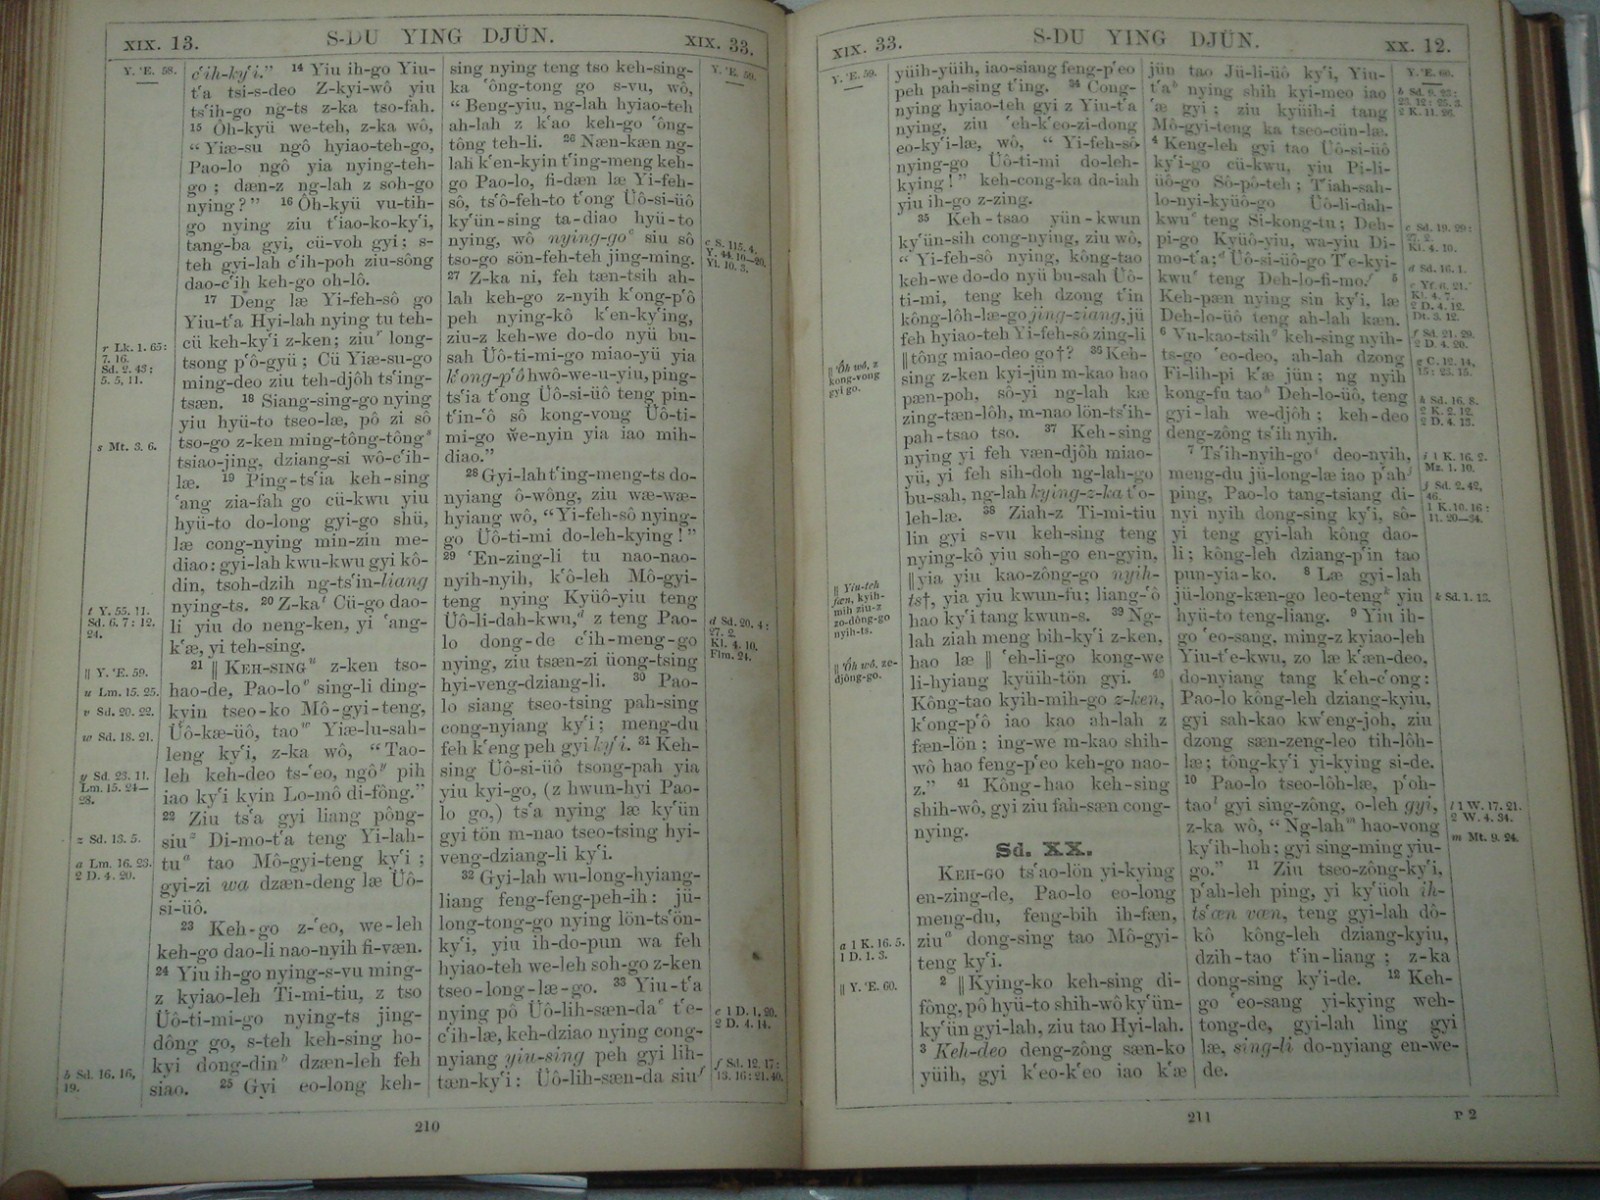 XIX. 13.
S-DU YING DJÜN.
XIX. 33.
Y. 'E. 58.
c'ih-ky'i." 14 Yiu ih-go Yiu-
t'a tsi-s-deo Z-kyi-wô yiu
ts'ih-go ng-ts z-ka tso-fah.
15 Ôh-kyü we-teh, z-ka wô,
"Yiæ-su ngô hyiao-teh-go,
Pao-lo ngô yia nying-teh-
go; dæn-z ng-lah z soh-go
nying?" 16 Ôh-kyü vu-tih-
go nying ziu t'iao-ko-ky'i,
tang-ba gyi, cü-voh gyi; s-
teh gyi-lah c'ih-poh ziu-sông
dao-c'ih keh-go oh-lô.
17 Deng læ Yi-feh-sô go
Yiu-t'a Hyi-lah nying tu teh-
cü keh-ky'i z-ken; ziu r long-
tsong p'ô-gyü; Cü Yiæ-su-go
ming-deo ziu teh-djôh ts'ing-
tsæn. 18 Siang-sing-go nying
yiu hyü-to tseo-læ, pô zi sô
tso-go z-ken ming-tông-tông s
tsiao-jing, dziang-si wô-c'ih-
læ. 19 Ping-ts'ia keh-sing
'ang zia-fah go cü-kwu yiu
hyü-to do-long gyi-go shü,
læ cong-nying min-zin me-
diao: gyi-lah kwu-kwu gyi kô-
din, tsoh-dzih ng-ts'in-liang
nying-ts. 20 Z-ka t Cü-go dao-
li yiu do neng-ken, yi 'ang-
k'æ, yi teh-sing.
21 || KEH-SING u z-ken tso-
hao-de, Pao-lo v sing-li ding-
kyin tseo-ko Mô-gyi-teng,
Üô-kæ-üô, tao w Yiæ-lu-sah-
leng ky'i, z-ka wô, "Tao-
leh keh-deo ts-'eo, ngô y pih
iao ky'i kyin Lo-mô di-fông."
22 Ziu ts'a gyi liang pông-
siu z Di-mo-t'a teng Yi-lah-
tu a tao Mô-gyi-teng ky'i;
gyi-zi wa dzæn-deng læ Üô-
si-üô.
23 Keh-go z-'eo, we-leh
keh-go dao-li nao-nyih fi-væn.
24 Yiu ih-go nying-s-vu ming-
z kyiao-leh Ti-mi-tiu, z tso
Üô-ti-mi-go nying-ts jing-
dông go, s-teh keh-sing ho-
kyi dong-din b dzæn-leh feh
siao. 25 Gyi eo-long keh-
r Lk. 1. 65:
7. 16.
Sd. 2. 43:
5. 5, 11.
s Mt. 3. 6.
t Y. 55. 11.
Sd. 6. 7: 12.
24.
|| Y. 'E. 59.
u Lm. 15. 25.
v Sd. 20. 22.
w Sd. 18. 21.
y Sd. 23. 11.
Lm. 15. 24—
28.
z Sd. 13. 5.
a Lm. 16. 23.
2 D. 4. 20.
b Sd. 16. 16,
19.
sing nying teng tso keh-sing-
ka 'ông-tong go s-vu, wô,
"Beng-yiu, ng-lah hyiao-teh
ah-lah z k'ao keh-go 'ông-
tông teh-li. 26 Næn-kæn ng-
lah k'en-kyin t'ing-meng keh-
go Pao-lo, fi-dæn læ Yi-feh-
sô, ts'ô-feh-to t'ong Üô-si-üô
ky'ün-sing ta-diao hyü-to
nying, wô nying-go c siu sô
tso-go sön-feh-teh jing-ming.
27 Z-ka ni, feh tæn-tsih ah-
lah keh-go z-nyih k'ong-p'ô
peh nying-kô k'en-ky'ing,
ziu-z keh-we do-do nyü bu-
sah Üô-ti-mi-go miao-yü yia
k'ong-p'ô hwô-we-u-yiu, ping-
ts'ia t'ong Üô-si-üô teng pin-
t'in-'ô sô kong-vong Üô-ti-
mi-go we-nyin yia iao mih-
diao."
28 Gyi-lah t'ing-meng-ts do-
nyiang ô-wông, ziu wæ-wæ-
hyiang wô, "Yi-feh-sô nying-
go Üô-ti-mi do-leh-kying!"
29 'En-zing-li tu nao-nao-
nyih-nyih, k'ô-leh Mô-gyi-
teng nying Kyüô-yiu teng
Üô-li-dah-kwu, d z teng Pao-
lo dong-de c'ih-meng-go
nying, ziu tsæn-zi üong-tsing
hyi-veng-dziang-li. 30 Pao-
lo siang tseo-tsing pah-sing
cong-nyiang ky'i; meng-du
feh k'eng peh gyi ky'i. 31 Keh-
sing Üô-si-üô tsong-pah yia
yiu kyi-go, (z hwun-hyi Pao-
lo go,) ts'a nying læ ky'ün
gyi tön m-nao tseo-tsing hyi-
veng-dziang-li ky'i.
32 Gyi-lah wu-long-hyiang-
liang feng-feng-peh-ih: jü-
long-tong-go nying lön-ts'ön-
ky'i, yiu ih-do-pun wa feh
hyiao-teh we-leh soh-go z-ken
tseo-long-læ-go. 33 Yiu-t'a
nying pô Üô-lih-sæn-da e t'e-
c'ih-læ, keh-dziao nying cong-
nyiang yiu-sing peh gyi lih-
tæn-ky'i: Üô-lih-sæn-da siu f
Y. 'E. 59.
c S. 115. 4.
Y. 44. 10—20.
Yl. 10. 3.
d Sd. 20. 4:
27. 2.
Kl. 4. 10.
Flm. 24.
e 1 D. 1. 20.
2 D. 4. 14.
f Sd. 12. 17:
13. 16: 21. 40.
210
XIX. 33.
S-DU YING DJÜN.
XX. 12.
Y. 'E. 59.
yüih-yüih, iao-siang feng-p'eo
peh pah-sing t'ing. 34 Cong-
nying hyiao-teh gyi z Yiu-t'a
nying, ziu 'eh-k'eo-zi-dong
eo-ky'i-læ, wô, "Yi-feh-sô-
nying-go Üô-ti-mi do-leh-
kying!" keh-cong-ka da-iah
yiu ih-go z-zing.
35 Keh-tsao yün-kwun
ky'ün-sih cong-nying, ziu wô,
"Yi-feh-sô nying, kông-tao
keh-we do-do nyü bu-sah Üô-
ti-mi, teng keh dzong t'in
kông-lôh-læ-go jing-ziang, jü
feh hyiao-teh Yi-feh-sô zing-li
|| tông miao-deo go†? 36 Keh-
sing z-ken kyi-jün m-kao hao
pæn-poh, sô-yi ng-lah kæ
zing-tæn-lôh, m-nao lön-ts'ih-
pah-tsao tso. 37 Keh-sing
nying yi feh væn-djôh miao-
yü, yi feh sih-doh ng-lah-go
bu-sah, ng-lah kying-z-ka t'o-
leh-læ. 38 Ziah-z Ti-mi-tiu
lin gyi s-vu keh-sing teng
nying-kô yiu soh-go en-gyin,
|| yia yiu kao-zông-go nyih-
ts†, yia yiu kwun-fu; liang-'ô
hao ky'i tang kwun-s. 39 Ng-
lah ziah meng bih-ky'i z-ken,
hao læ || 'eh-li-go kong-we
li-hyiang kyüih-tön gyi. 40
Kông-tao kyih-mih-go z-ken,
k'ong-p'ô iao kao ah-lah z
fæn-lön; ing-we m-kao shih-
wô hao feng-p'eo keh-go nao-
z." 41 Kông-hao keh-sing
shih-wô, gyi ziu fah-sæn cong-
nying.
Sd. XX.
KEH-GO ts'ao-lön yi-kying
en-zing-de, Pao-lo eo-long
meng-du, feng-bih ih-fæn,
ziu a dong-sing tao Mô-gyi-
teng ky'i.
2 || Kying-ko keh-sing di-
fông, pô hyü-to shih-wô ky'ün-
ky'ün gyi-lah, ziu tao Hyi-lah.
3 Keh-deo deng-zông sæn-ko
yüih, gyi k'eo-k'eo iao k'æ
|| Ôh wô, z
kong-vong
gyi go.
|| Yiu-teh
fæn, kyih-
mih ziu-z
zo-dông-go
nyih-ts.
|| Ôh wô, ze-
djông-go.
a 1 K. 16. 5.
1 D. 1. 3.
|| Y. 'E. 60.
jün tao Jü-li-üô ky'i, Yiu-
t'a b nying shih kyi-meo iao
'æ gyi; ziu kyüih-i tang
Mô-gyi-teng ka tseo-cün-læ.
4 Keng-leh gyi tao Üô-si-üô
ky'i-go cü-kwu, yiu Pi-li-
üô-go Sô-pô-teh; T'iah-sah-
lo-nyi-kyüô-go Üô-li-dah-
kwu c teng Si-kong-tu; Deh-
pi-go Kyüô-yiu, wa-yiu Di-
mo-t'a; d Üô-si-üô-go T'e-kyi-
kwu e teng Deh-lo-fi-mo. f 5
Keh-pæn nying siu ky'i, læ
Deh-lo-üô teng ah-lah kæn.
6 Vu-kao-tsih g keh-sing nyih-
ts-go 'eo-deo, ah-lah dzong
Fi-lih-pi k'æ jün; ng nyih
kong-fu tao h Deh-lo-üô, teng
gyi-lah we-djôh; keh-deo
deng-zông ts'ih nyih.
7 Ts'ih-nyih-go i deo-nyih,
meng-du jü-long-læ iao p'ah j
ping, Pao-lo tang-tsiang di-
nyi nyih dong-sing ky'i, sô-
yi teng gyi-lah kông dao-
li; kông-leh dziang-p'in tao
pun-yia-ko. 8 Læ gyi-lah
jü-long-kæn-go leo-teng k yiu
hyü-to teng-liang. 9 Yiu ih-
go 'eo-sang, ming-z kyiao-leh
Yiu-t'e-kwu, zo læ k'æn-deo,
do-nyiang tang k'eh-c'ong:
Pao-lo kông-leh dziang-kyiu,
gyi sah-kao kw'eng-joh, ziu
dzong sæn-zeng-leo tih-lôh-
læ; tông-ky'i yi-kying si-de.
10 Pao-lo tseo-lôh-læ, p'oh-
tao l gyi sing-zông, o-leh gyi,
z-ka wô, "Ng-lah m hao-vong
ky'ih-hoh; gyi sing-ming yiu-
go." 11 Ziu tseo-zông-ky'i,
p'ah-leh ping, yi ky'üoh ih-
ts'æn væn, teng gyi-lah dô-
kô kông-leh dziang-kyiu,
dzih-tao t'in-liang; z-ka
dong-sing ky'i-de. 12 Keh-
go 'eo-sang yi-kying weh-
tong-de, gyi-lah ling gyi
læ, sing-li do-nyiang en-we-
de.
Y. 'E. 60.
b Sd. 9. 23:
23. 12: 25. 3.
2 K. 11. 26.
c Sd. 19. 29:
27. 2.
Kl. 4. 10.
d Sd. 16. 1.
e Yf. 6. 21.
Kl. 4. 7.
2 D. 4. 12.
Dt. 3. 12.
f Sd. 21. 29.
2 D. 4. 20.
g C. 12. 14,
15: 23. 15.
h Sd. 16. 8.
2 K. 2. 12.
2 D. 4. 13.
i 1 K. 16. 2.
Mz. 1. 10.
j Sd. 2. 42,
46.
1 K. 10. 16:
11. 20—34.
k Sd. 1. 13.
l 1 W. 17. 21.
2 W. 4. 34.
m Mt. 9. 24.
211
P 2